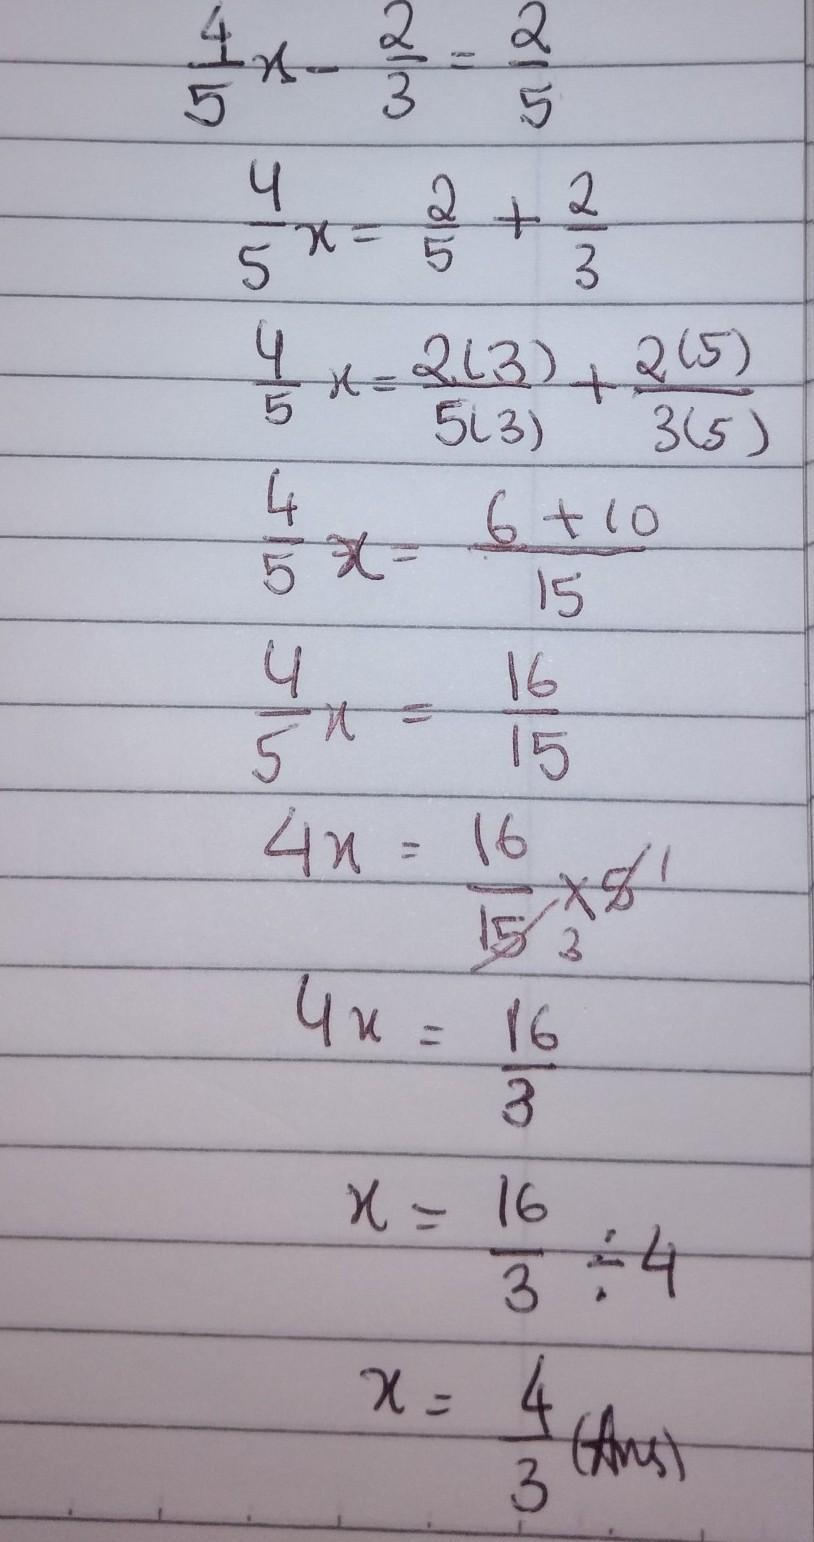 4/5 x - 2/3 = 2/5
4/5 x = 2/5 + 2/3
4/5 x = 2(3)/5(3) + 2(5)/3(5)
4/5 x = (6 + 10)/15
4/5 x = 16/15
4x = 16/15 3 × 5 1
4x = 16/3
x = 16/3 ÷ 4
x = 4/3 (Ans)